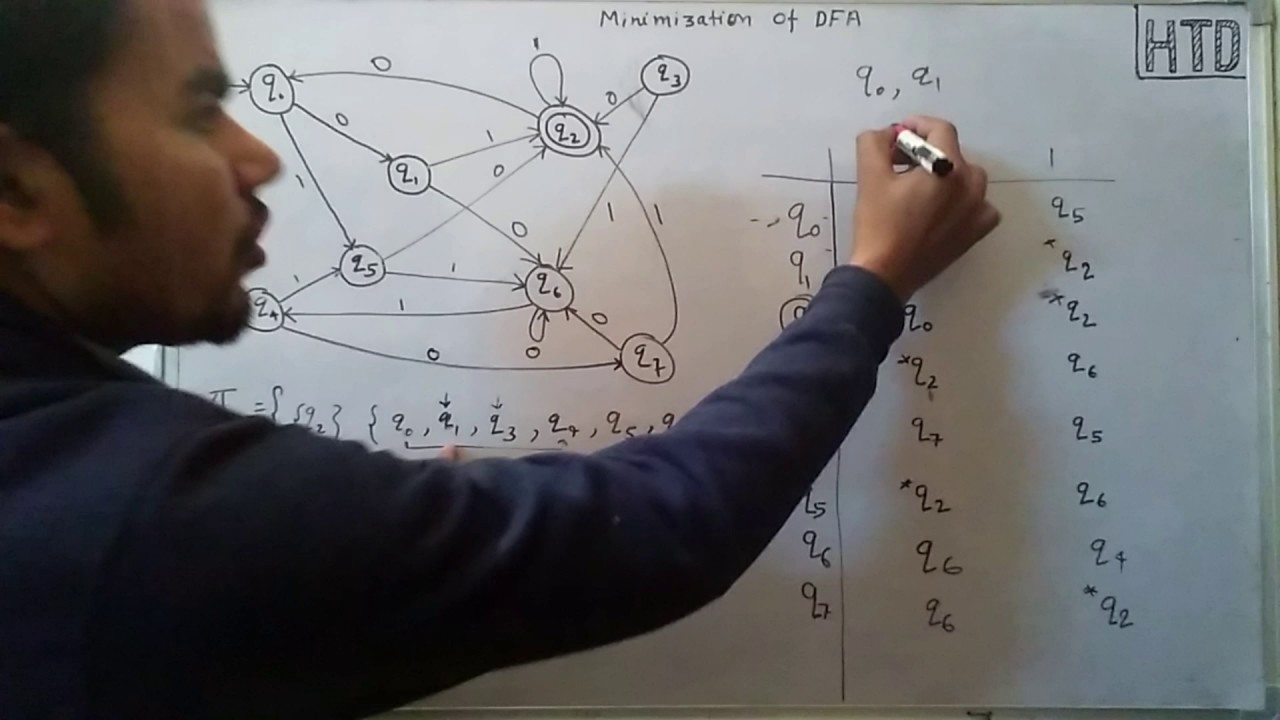 Minimization of DFA
HTD
q0, q1
q0
0
1
q3
0
0
1
q2
q1
1
0
0
1
1
q5
1
q6
1
q4
1
0
0
0
q7
= { {q2} { q0, q1, q3, q4, q5,
1
→ q0 q5
q1 *q2
q0 *q2
*q2 q6
q7 q5
q5 *q2 q6
q6 q6 q4
q7 q6 *q2